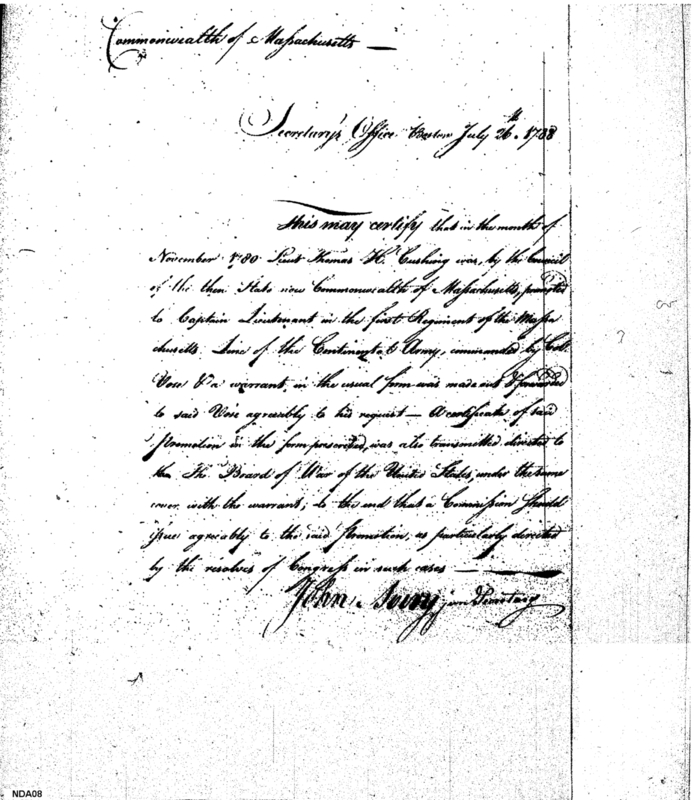 Commonwealth of Massachusetts —
Secretary's Office Boston July 26th. 1788
This may certify that in the month of
November 1780 Lieut Thomas H. Cushing was, by the Council
of the then State now Commonwealth of Massachusetts, promoted
to Captain Lieutenant in the first Regiment of the Massa
chusetts Line of the Continental Army, commanded by Colo.
Vose & a warrant, in the usual form was made out & forwarded
to said Vose agreably to his request — A certificate of said
promotion in the form prescribed, was also transmitted directed to
the Ho. Board of War of the United States, under the same
cover with the warrant; to the end that a Commission should
issue agreably to the said promotion, as particularly directed
by the resolves of Congress in such cases —
John Avery jun Secretary
NDA08